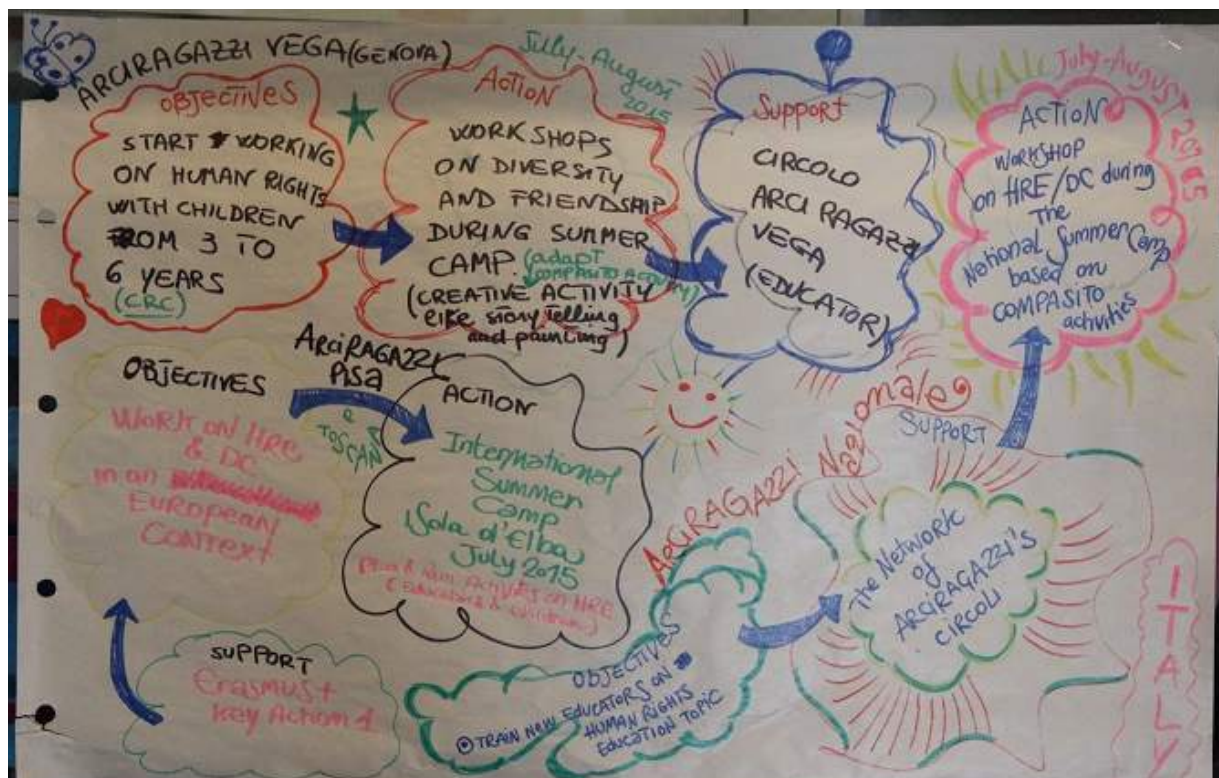 ARCIRAGAZZI VEGA (GENOVA)
OBJECTIVES
START WORKING
ON HUMAN RIGHTS
WITH CHILDREN
FROM 3 TO
6 YEARS
(CRC)
ACTION
July-August
2015
WORKSHOPS
ON DIVERSITY
AND FRIENDSHIP
DURING SUMMER
CAMP. (adapt
COMPASITO ACTIVITY)
(CREATIVE ACTIVITY
like story telling
and painting)
Support
CIRCOLO
ARCI RAGAZZI
VEGA
(EDUCATOR)
July-August 2015
ACTION
WORKSHOP
on HRE/DC during
The
National Summer Camp
based on
COMPASITO
activities
OBJECTIVES
Work on HRE
& DC
in an
European
Context
ArciRAGAZZI
PISA
e
TOSCANA
ACTION
International
Summer
Camp
Isola d'Elba
July 2015
Plan & Run Activities on HRE
(Educators & children)
SUPPORT
Erasmus+
Key Action 1
ArciRAGAZZI Nazionale
OBJECTIVES
TRAIN NEW EDUCATORS ON
HUMAN RIGHTS
EDUCATION TOPIC
SUPPORT
The Network
of
ARCIRAGAZZI'S
CIRCOLI
ITALY